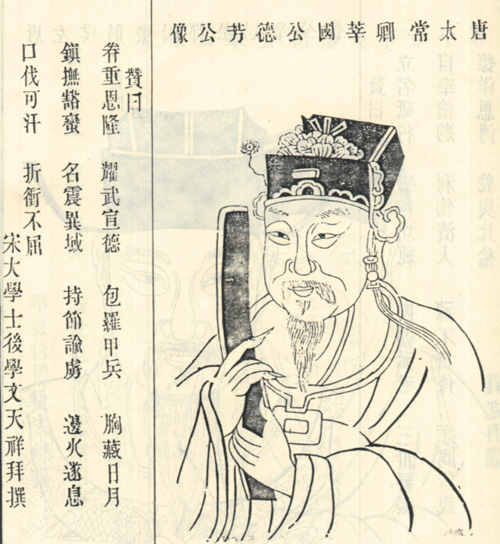 唐太常卿莘國公德芳公像
贊曰
眷重恩隆 耀武宣德 包羅甲兵 胸藏日月
鎮撫豁蠻 名震異域 持節諭虜 邊火遂息
口伐可汗 折衝不屈
宋大學士後學文天祥拜撰